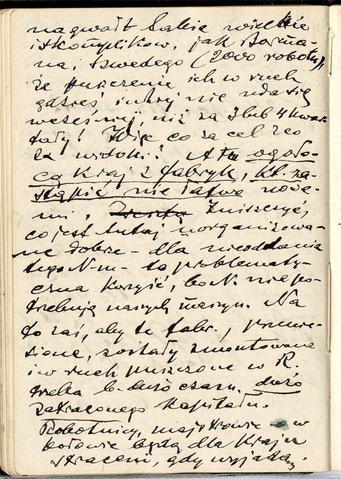 na gwałt takie wielkie
i skomplikow., jak Borma-
na i Szwedego (2000 robotn.),
że puszczenie ich w ruch
gdzieś indziej nie uda się
wcześniej, niż za 3 lub 4 kwar-
tały! Więc co za cel
za widoki! A tu ogoło-
cą kraj z fabryk, kt. za-
stąpić nie łatwo może-
my. Zniszczyć,
co jest tutaj zorganizowa-
ne dobrze – dla nieoddania
tego N-m – to problematy-
czna korzyść, bo N. nie po-
trzebują naszych maszyn. Na
to zaś, aby te fabr., przewie-
zione, zostały zmontowane
i w ruch puszczone w R.
trzeba b. dużo czasu, dużo
zatraconego kapitału.
Robotnicy, majstrowie w
połowie będą dla kraju
straceni, gdy wyjadą.